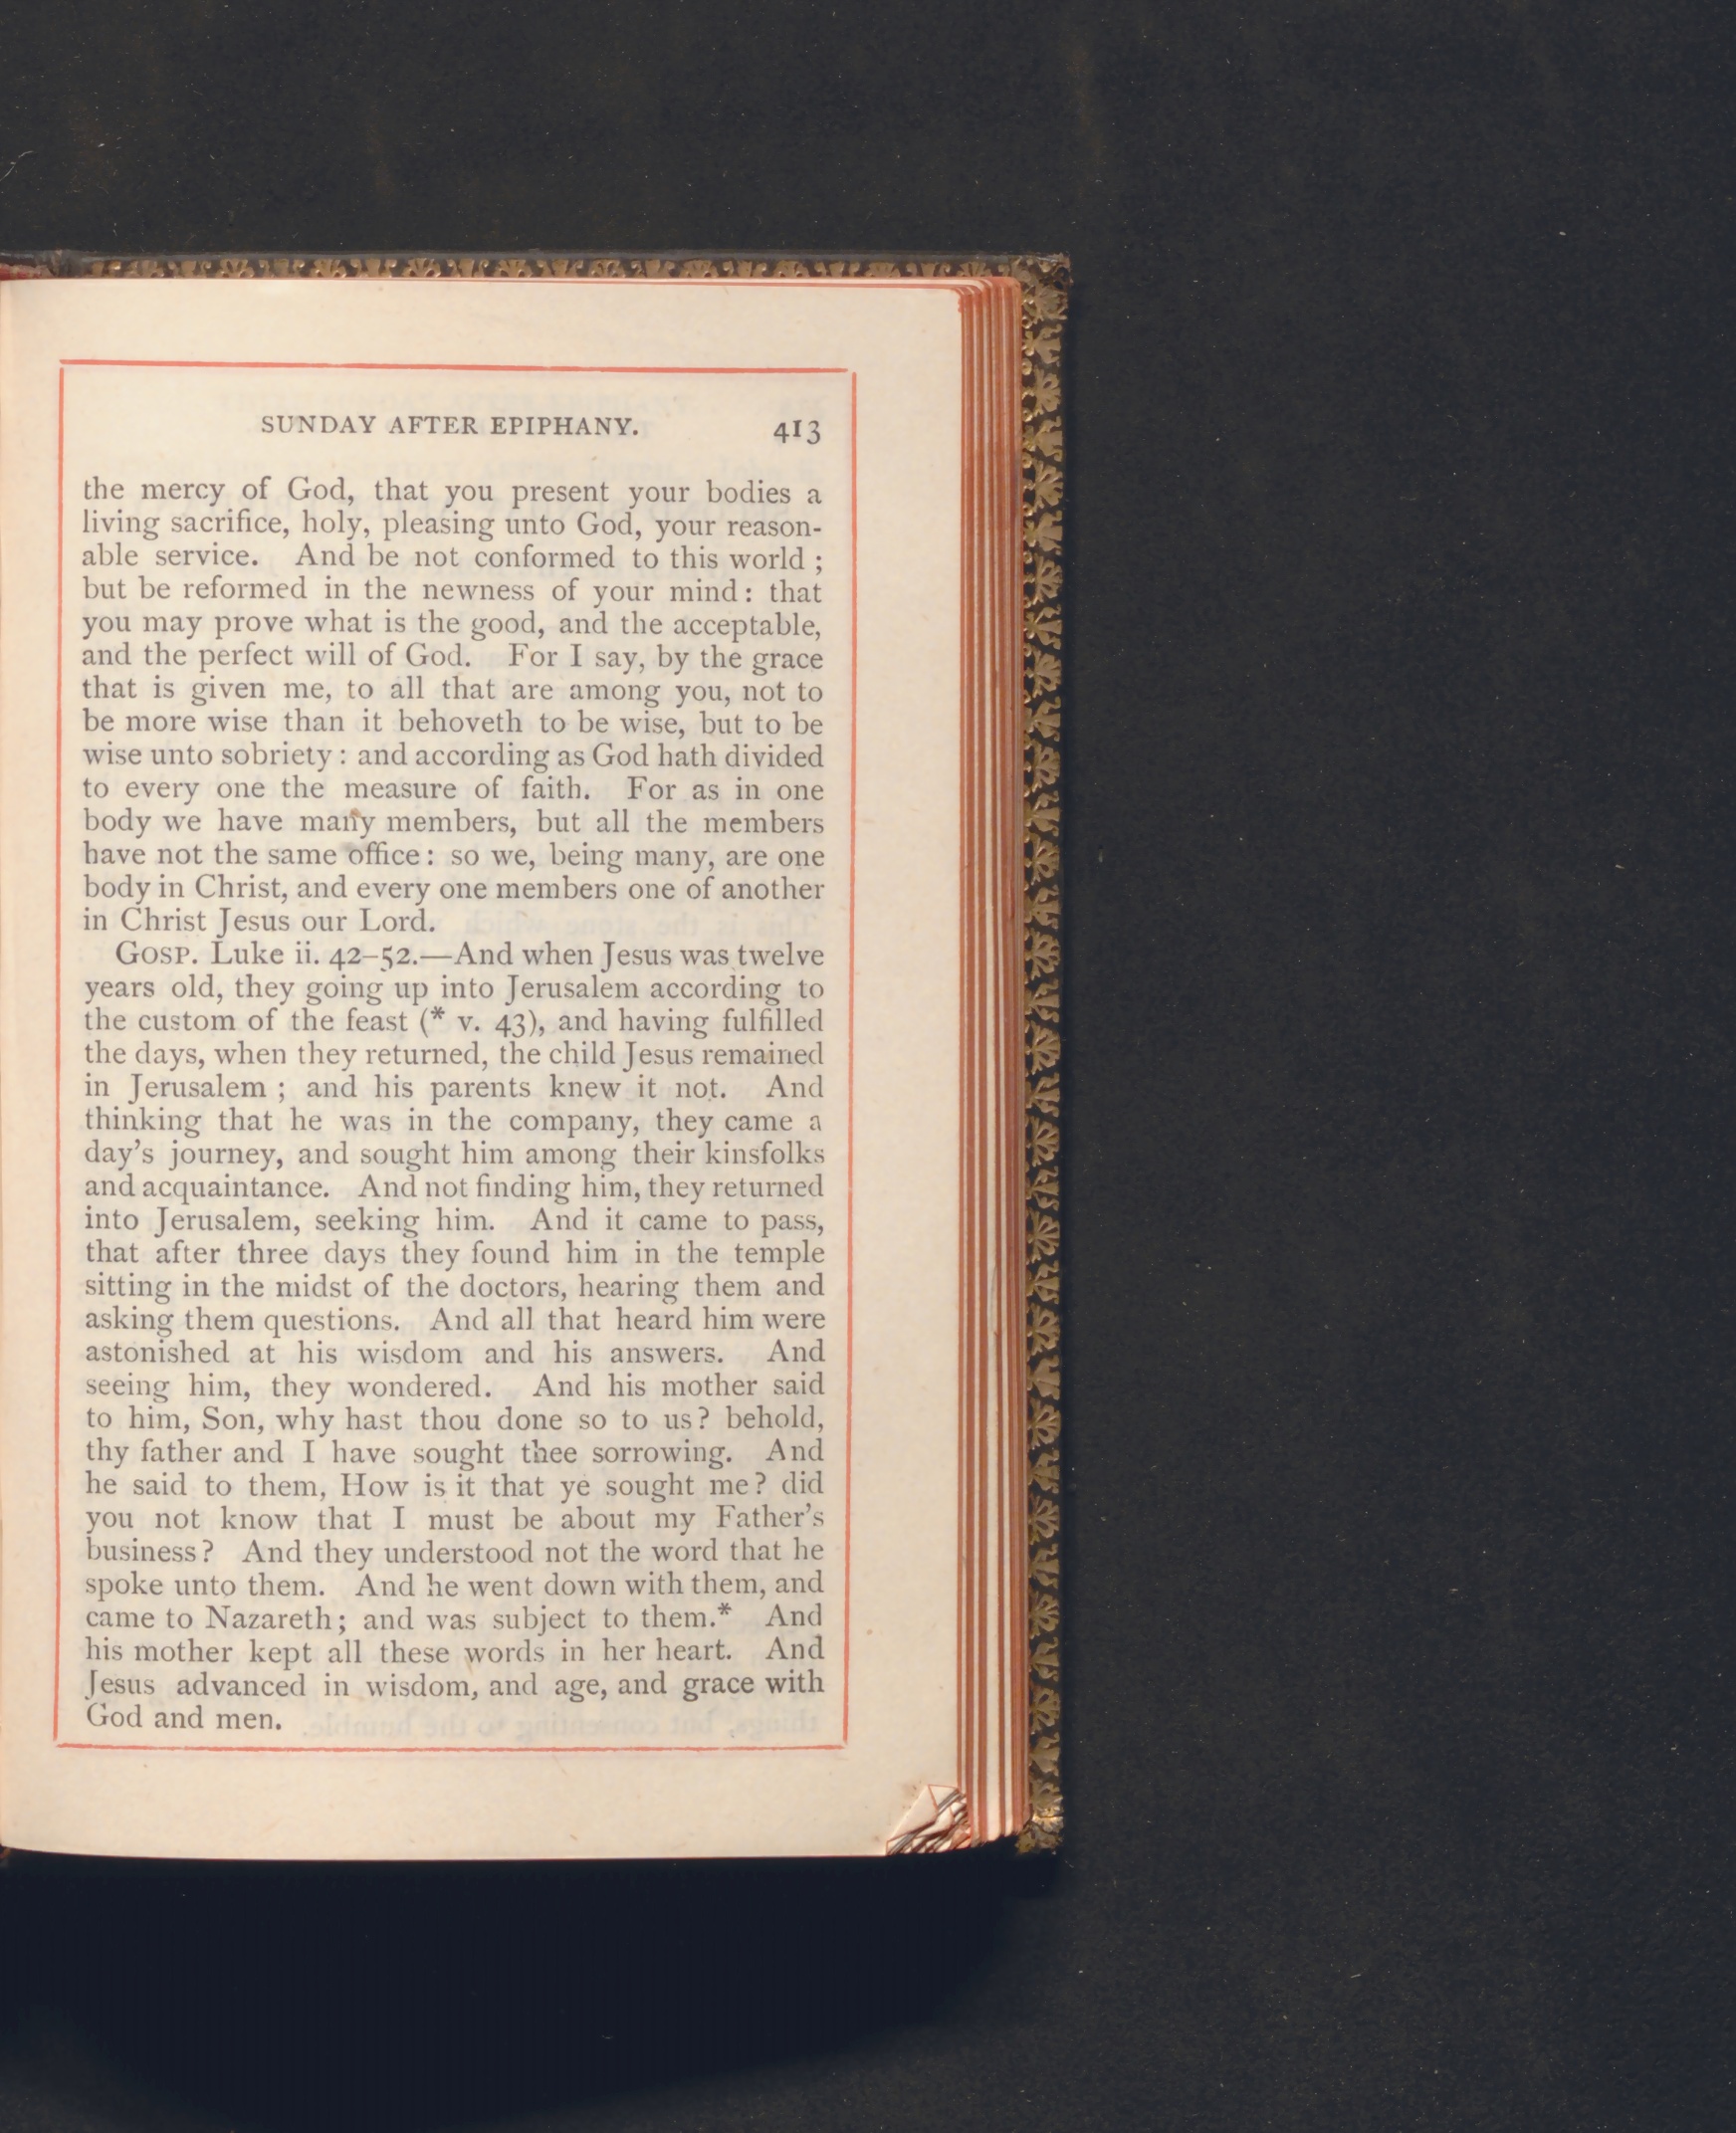 SUNDAY AFTER EPIPHANY. 413
the mercy of God, that you present your bodies a
living sacrifice, holy, pleasing unto God, your reason-
able service. And be not conformed to this world ;
but be reformed in the newness of your mind : that
you may prove what is the good, and the acceptable,
and the perfect will of God. For I say, by the grace
that is given me, to all that are among you, not to
be more wise than it behoveth to be wise, but to be
wise unto sobriety : and according as God hath divided
to every one the measure of faith. For as in one
body we have many members, but all the members
have not the same office : so we, being many, are one
body in Christ, and every one members one of another
in Christ Jesus our Lord.
GOSP. Luke ii. 42–52.—And when Jesus was twelve
years old, they going up into Jerusalem according to
the custom of the feast (* v. 43), and having fulfilled
the days, when they returned, the child Jesus remained
in Jerusalem ; and his parents knew it not. And
thinking that he was in the company, they came a
day's journey, and sought him among their kinsfolks
and acquaintance. And not finding him, they returned
into Jerusalem, seeking him. And it came to pass,
that after three days they found him in the temple
sitting in the midst of the doctors, hearing them and
asking them questions. And all that heard him were
astonished at his wisdom and his answers. And
seeing him, they wondered. And his mother said
to him, Son, why hast thou done so to us ? behold,
thy father and I have sought thee sorrowing. And
he said to them, How is it that ye sought me ? did
you not know that I must be about my Father's
business ? And they understood not the word that he
spoke unto them. And he went down with them, and
came to Nazareth ; and was subject to them.* And
his mother kept all these words in her heart. And
Jesus advanced in wisdom, and age, and grace with
God and men.